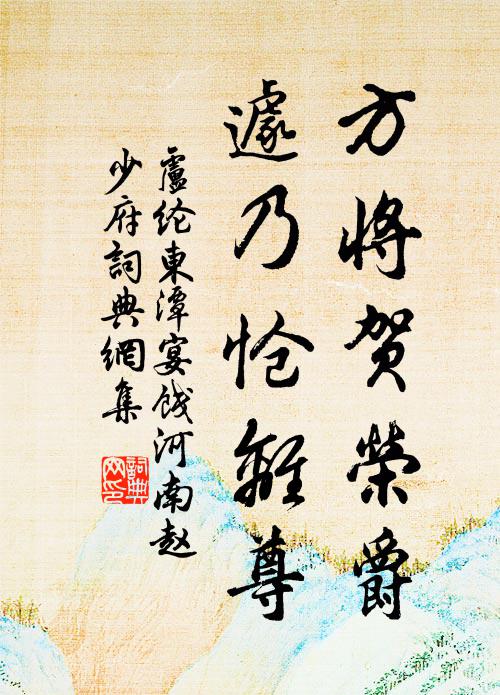 方将贺榮爵
遽乃怆離尊
盧纶東潭宴饯河南赵
少府詞典網集
詞典网印